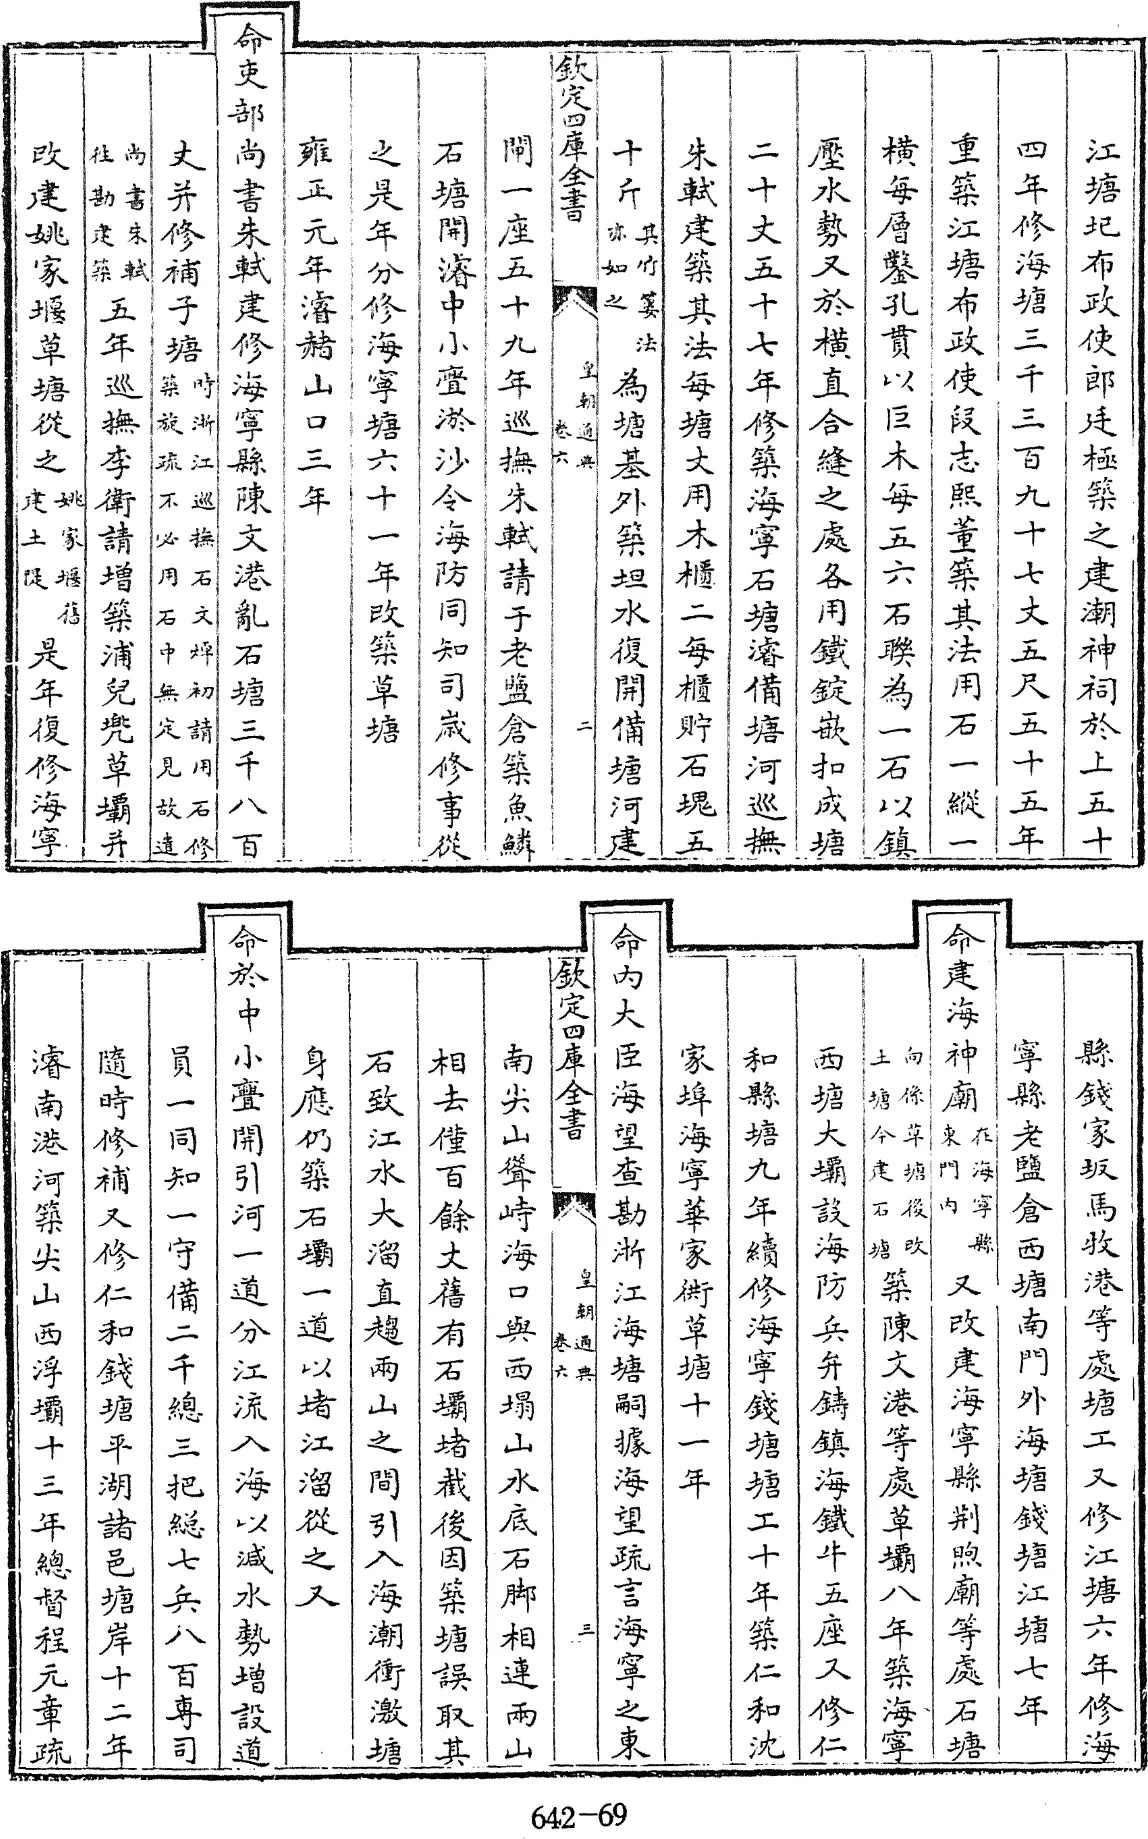 江塘圮布政使郎廷極築之建潮神祠於上五十
四年修海塘三千三百九十七丈五尺五十五年
重築江塘布政使段志熙董築其法用石一縱一
橫每層鑿孔貫以巨木每五六石聯為一石以鎮
壓水勢又於橫直合縫之處各用鐵錠嵌扣成塘
二十丈五十七年修築海寧石塘濬備塘河巡撫
朱軾建築其法每塘丈用木櫃二每櫃貯石塊五
十斤其竹簍法亦如之為塘基外築坦水復開備塘河建
欽定四庫全書
皇朝通典
卷六
二
閘一座五十九年巡撫朱軾請于老鹽倉築魚鱗
石塘開濬中小亹淤沙令海防同知司歲修事從
之是年分修海寧塘六十一年改築草塘
雍正元年濬赭山口三年
命吏部尚書朱軾建修海寧縣陳文港亂石塘三千八百
丈并修補子塘時浙江巡撫石文焯初請用石修築旋疏不必用石中無定見故遣
尚書朱軾往勘建築五年巡撫李衛請增築浦兒兜草壩并
改建姚家堰草塘從之姚家堰舊建土隄是年復修海寧
縣錢家坂馬牧港等處塘工又修江塘六年修海
寧縣老鹽倉西塘南門外海塘錢塘江塘七年
命建海神廟在海寧縣東門內又改建海寧縣荆煦廟等處石塘
向係草塘後改土塘今建石塘築陳文港等處草壩八年築海寧
西塘大壩設海防兵弁鑄鎮海鐵牛五座又修仁
和縣塘九年續修海寧錢塘塘工十年築仁和沈
家埠海寧華家衖草塘十一年
命內大臣海望查勘浙江海塘嗣據海望疏言海寧之東
欽定四庫全書
皇朝通典
卷六
三
南尖山聳峙海口與西塌山水底石脚相連兩山
相去僅百餘丈舊有石壩堵截後因築塘誤取其
石致江水大溜直趨兩山之間引入海潮衝激塘
身應仍築石壩一道以堵江溜從之又
命於中小亹開引河一道分江流入海以減水勢增設道
員一同知一守備二千總三把總七兵八百專司
隨時修補又修仁和錢塘平湖諸邑塘岸十二年
濬南港河築尖山西浮壩十三年總督程元章疏
642-69